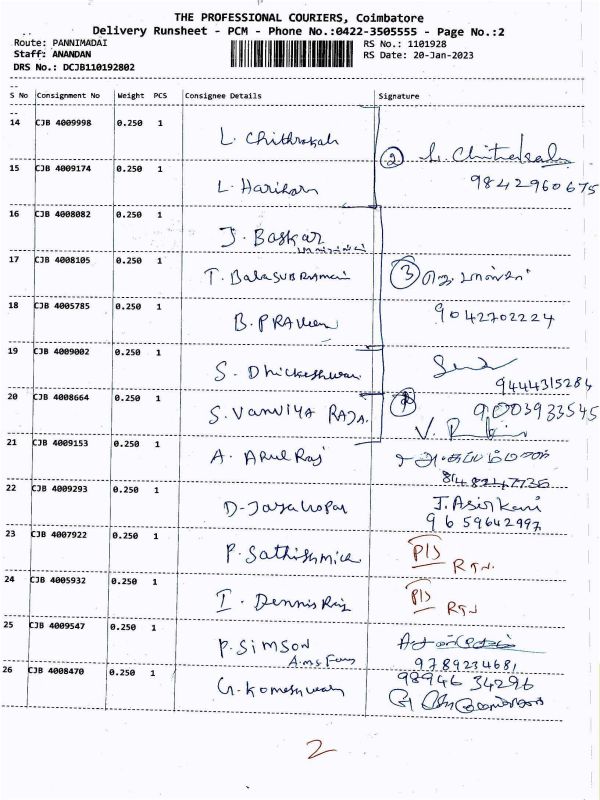 THE PROFESSIONAL COURIERS, Coimbatore
Delivery Runsheet - PCM - Phone No.:0422-3505555 - Page No.:2
Route: PANNIMADAI RS No.: 1101928
Staff: ANANDAN RS Date: 20-Jan-2023
DRS No.: DCJB110192802
S No Consignment No Weight PCS Consignee Details Signature
14 CJB 4009998 0.250 1 L. Chithrakah
2 L. Chitrakala
15 CJB 4009174 0.250 1 L. Hariharn 9842960675
16 CJB 4008082 0.250 1 J. Baskar
17 CJB 4008105 0.250 1 T. BalaSUBRAmani 3
18 CJB 4005785 0.250 1 B. PRAVeen 9042702224
19 CJB 4009002 0.250 1 S. Dhickeshwar
9444315284
20 CJB 4008664 0.250 1 S. Vanviya RAJA. 9003933545
V.
21 CJB 4009153 0.250 1 A. Arul Raj
22 CJB 4009293 0.250 1 D. Jayagopar J. Asir Kani
9659642997
23 CJB 4007922 0.250 1 P. Sathishmica P/S RTN.
24 CJB 4005932 0.250 1 I. Dennis Raj P/S RTN
25 CJB 4009547 0.250 1 P. SIMSON
9789234681
26 CJB 4008470 0.250 1 G. Komeshwar 98946 34296
2